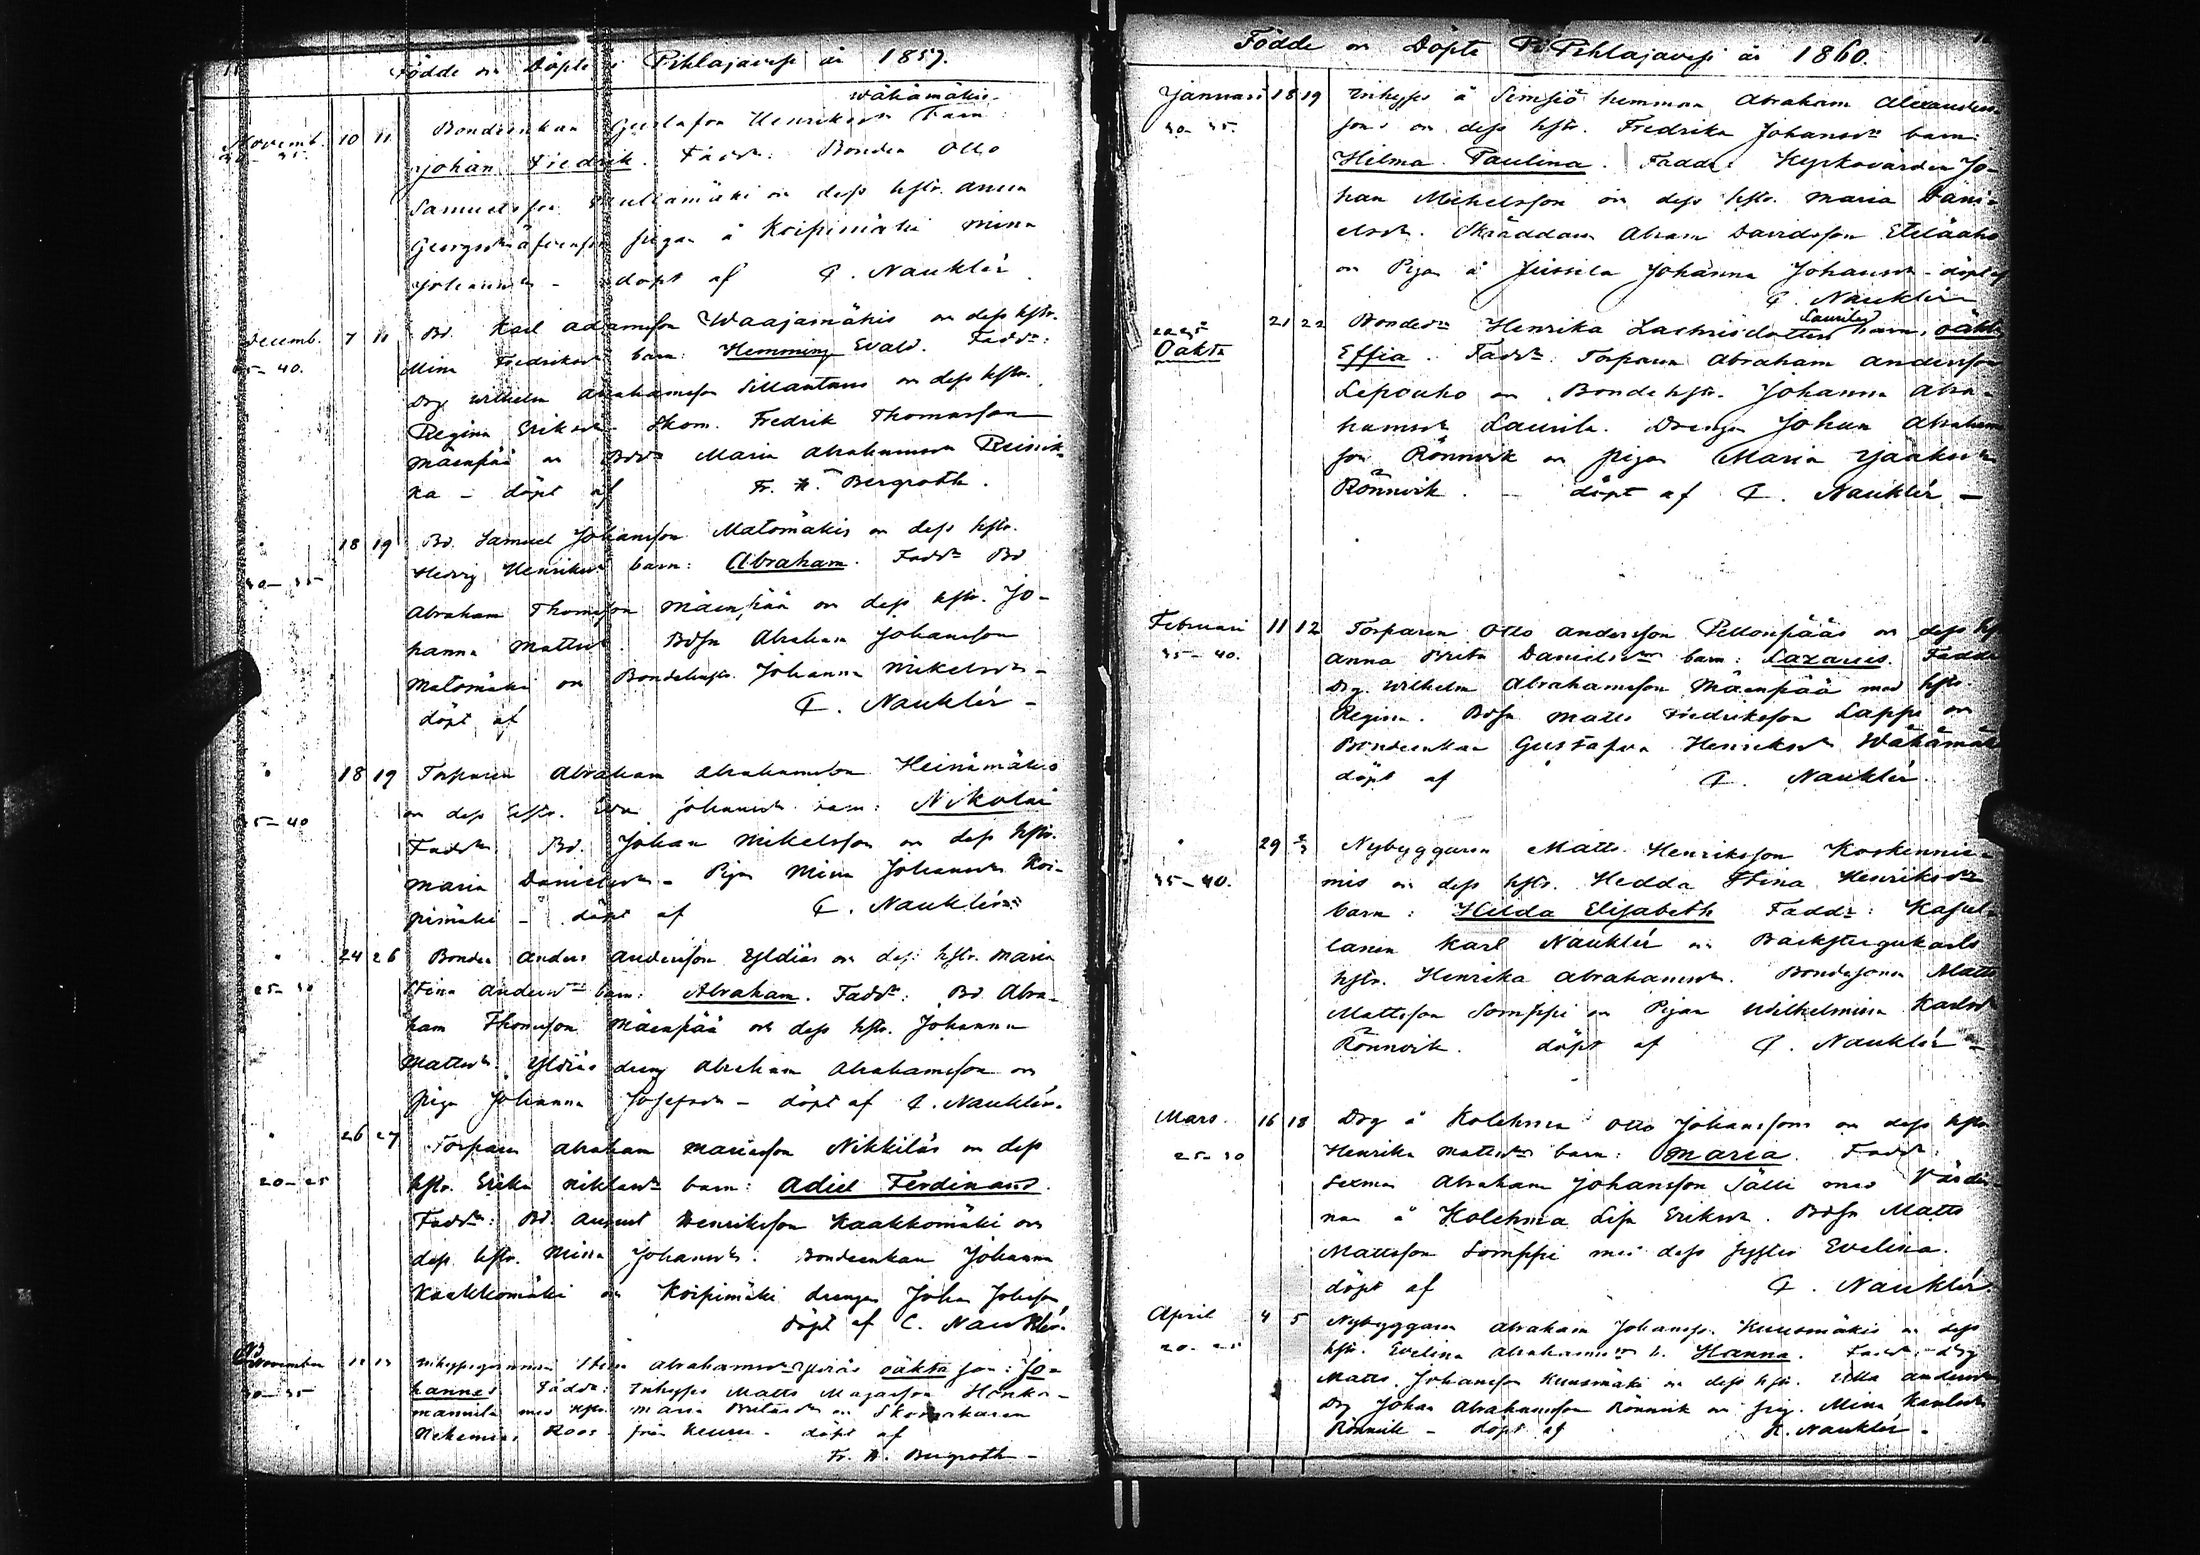 Födde och Döpte i Pihlajavesi år 1859.
Novemb. 10 11 Bondeenkan Gustafva Henriksdr Wähämäkis barn:
Johan Fredrik. Faddr: Bonden Otto
Samuelsson Multamäki och dess hstr. Anna
Georgsdr pigan å Koipimäki Mina
Johansdr - döpt af C. Nauklér
Decemb. 7 11 Bd. Karl Adamsson Waajamäkis och dess hstr.
35-40. Mina Fredriksdr barn: Hemming Evald. Faddr:
Drg Wilhelm Abrahamsson Sillantaus och dess hstr.
Regina Eriksdr Skom. Fredrik Thomasson
Mäenpää och Bdr Maria Abrahamsdr Reinik-
ka - döpt af Fr. W. Bergroth.
18 19 Bd. Samuel Johansson Matomäkis och dess hstr.
30-35 Hedvig Henriksdr barn: Abraham. Faddr Bd
Abraham Thomsson Mäenpää och dess hstr. Jo-
hanna Mattsdr. Bdsn Abraham Johansson
Matomäki och Bondehustr. Johanna Mikelsdr -
döpt af C. Nauklér -
18 19 Torparen Abraham Abrahamsson Heinämäkis
35-40 och dess hstr. Eva Johansdr barn: Nikolai
Faddr Bd. Johan Mikelsson och dess hstr.
Maria Danielsdr - Pigan Mina Johansdr Koi-
pimäki - döpt af C. Nauklér
24 26 Bonden Anders Andersson Yldiäs och dess hstr. Maria
25-30 Stina Andersdr barn: Abraham. Faddr: Bd. Abra-
ham Thomsson Mäenpää och dess hstr. Johanna
Mattsdr. Yldiäs dreng Abraham Abrahamsson och
piga Johanna Josefsdr - döpt af C. Nauklér.
26 27 Torparen Abraham Mariasson Nikkiläs och dess
20-25 hstr. Erika Niklasdr barn: Adiel Ferdinand.
Faddr: Bd. August Henriksson Kaakkomäki och
dess hstr. Mina Johansdr. Bondeenkan Johanna
Kaakkomäki och Koipimäki drengen Johan Johsson
döpt af C. Nauklér.
November 12 13 Inhysesqvinnan Stina Abrahamsdr oäkta son: Jo-
30-35 hannes Faddr: Inhyses Matts Majasson Honka-
mannila med hstr. Maria och Skomakaren
Nehemias Roos från Keuru - döpt af
Fr. W. Bergroth -
Födde och Döpte i Pihlajavesi år 1860.
Januari 18 19 Inhyses å Simsiö hemman Abraham Alexanders-
30-35. sons och dess hstr. Fredrika Johansdr barn:
Hilma Paulina. Faddr: Kyrkovärden Jo-
han Mikelsson och dess hstr. Maria Dani-
elsdr. Skräddaren Abram Davidsson Eteläaho
och Pigan å Jussila Johanna Johansdr - döpt af
C. Nauklér
21 22 Bondedr Henrika Zachrisdotters Laurilas barn, oäkta
22 25
Oäkta
Effia. Faddr: Torparen Abraham Andersson
Lepouho och Bondehstr. Johanna Abra-
hamsdr Laurila. Drengen Johan Abraham
son Rönnvik och pigan Maria Jaaksdr
Rönnvik. - döpt af C. Nauklér -
Februari 11 12 Torparen Otto Andersson Pellonpääs och dess hstr
35-40. Anna Brita Danielsdr barn: Lazarus. Faddr
Drg. Wilhelm Abrahamsson Mäenpää med hstr.
Regina. Bdsn Matts Fredriksson Lappi och
Bondeenkan Gustafva Henriksdr Wähämäk
döpt af C. Nauklér.
29 2/3 Nybyggaren Matts Henriksson Koskennie-
35-40. mis och dess hstr. Hedda Stina Henriksdr
barn: Hilda Elisabeth Faddr: Kapel-
lanen Karl Nauklér och Backstugukarls
hstr. Henrika Abrahamsdr. Bondesonen Matts
Mattsson Somppi och Pigan Wilhelmina Karlsdr
Rönnvik. döpt af C. Nauklér
Mars. 16 18 Drg å Kolehma Otto Johanssons och dess hstr
25-30 Henrika Mattsdr barn: Maria. Faddr.
Sexman Abraham Johansson Jälli med Värdin-
nan å Kolehma Lisa Eriksdr. Bdsn Matts
Mattsson Somppi med dess syster Evelina.
döpt af C. Nauklér.
April 4 5 Nybyggaren Abraham Johanss. Kuusmäkis och dess
20-25 hstr. Evelina Abrahamsdr b. Hanna. Faddr: drg
Matts Johansson Kuusmäki och dess hstr. Ulla Andersdr
Drg Johan Abrahamsson Rönnvik och pig. Mina Karlsdr
Rönnvik - döpt af K. Nauklér -